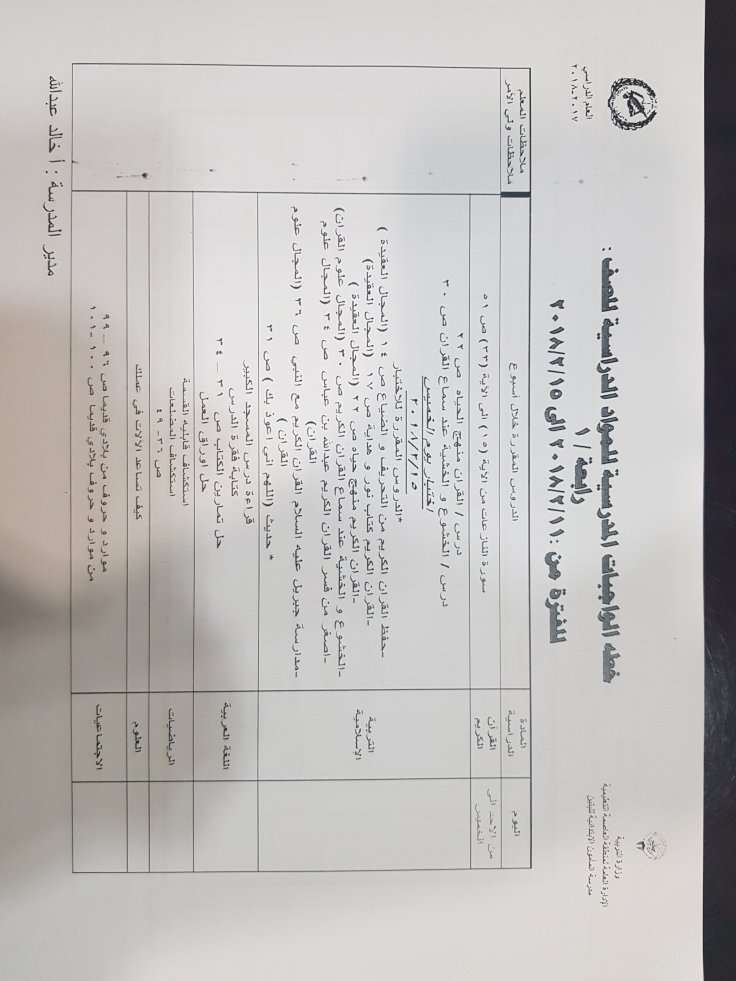 وزارة التربية
الإدارة العامة لمنطقة العاصمة التعليمية
العام الدراسي
٢٠١٧-٢٠١٨
خطه الواجبات المدرسية للمواد الدراسية للصف :
رابعة / ١
للفترة من : ٢٠١٨/٢/١١ الى ٢٠١٨/٢/١٥
اليوم
المادة الدراسية
الدروس المقررة خلال أسبوع
ملاحظات المعلم
ملاحظات ولي الأمر
من الاحد الى الخميس
القرآن الكريم
سورة النازعات من الاية (١٥) الى الاية (٣٣) ص ٥١
التربية الإسلامية
درس / القران منهج الحياه ص ٢٢
درس / الخشوع و الخشية عند سماع القران ص ٣٠
/ختبار يوم /لخميس
٢٠١٨/٢/١٥
*الدروس المقررة للاختبار
-حفظ القران الكريم من التحريف و الضياع ص ١٤ (المجال العقيدة )
-القران الكريم كتاب نور و هداية ص ١٧ (المجال العقيدة)
-القران الكريم منهج حياه ص ٢٢ (المجال العقيدة )
-الخشوع و الخشية عند سماع القران الكريم ص ٣٠ (المجال علوم القران)
-اصغر من فسر القران الكريم عبدالله بن عباس ص ٣٤ (المجال علوم
القران)
-مدارسة جبريل عليه السلام القران الكريم مع النبي ص ٣٦ (المجال علوم
القران )
* حديث (اللهم اني اعوذ بك ) ص ٣١
اللغة العربية
قراءة درس المسجد الكبير
كتابة فقرة الدرس
حل تمارين الكتاب ص ٣١ – ٣٤
حل اوراق العمل
الرياضيات
استكشاف قابليه القسمة
استكشاف المضلعات
ص ٣٦ - ٤٩
العلوم
كيف تساعد الآلات في عملك
الاجتماعيات
موارد و حروف من بلادي قديما ص ٩٦ – ٩٩
من موارد و حروف بلادي قديما ص ١٠٠-١٠١
مدير المدرسة : أ خالد عبدالله